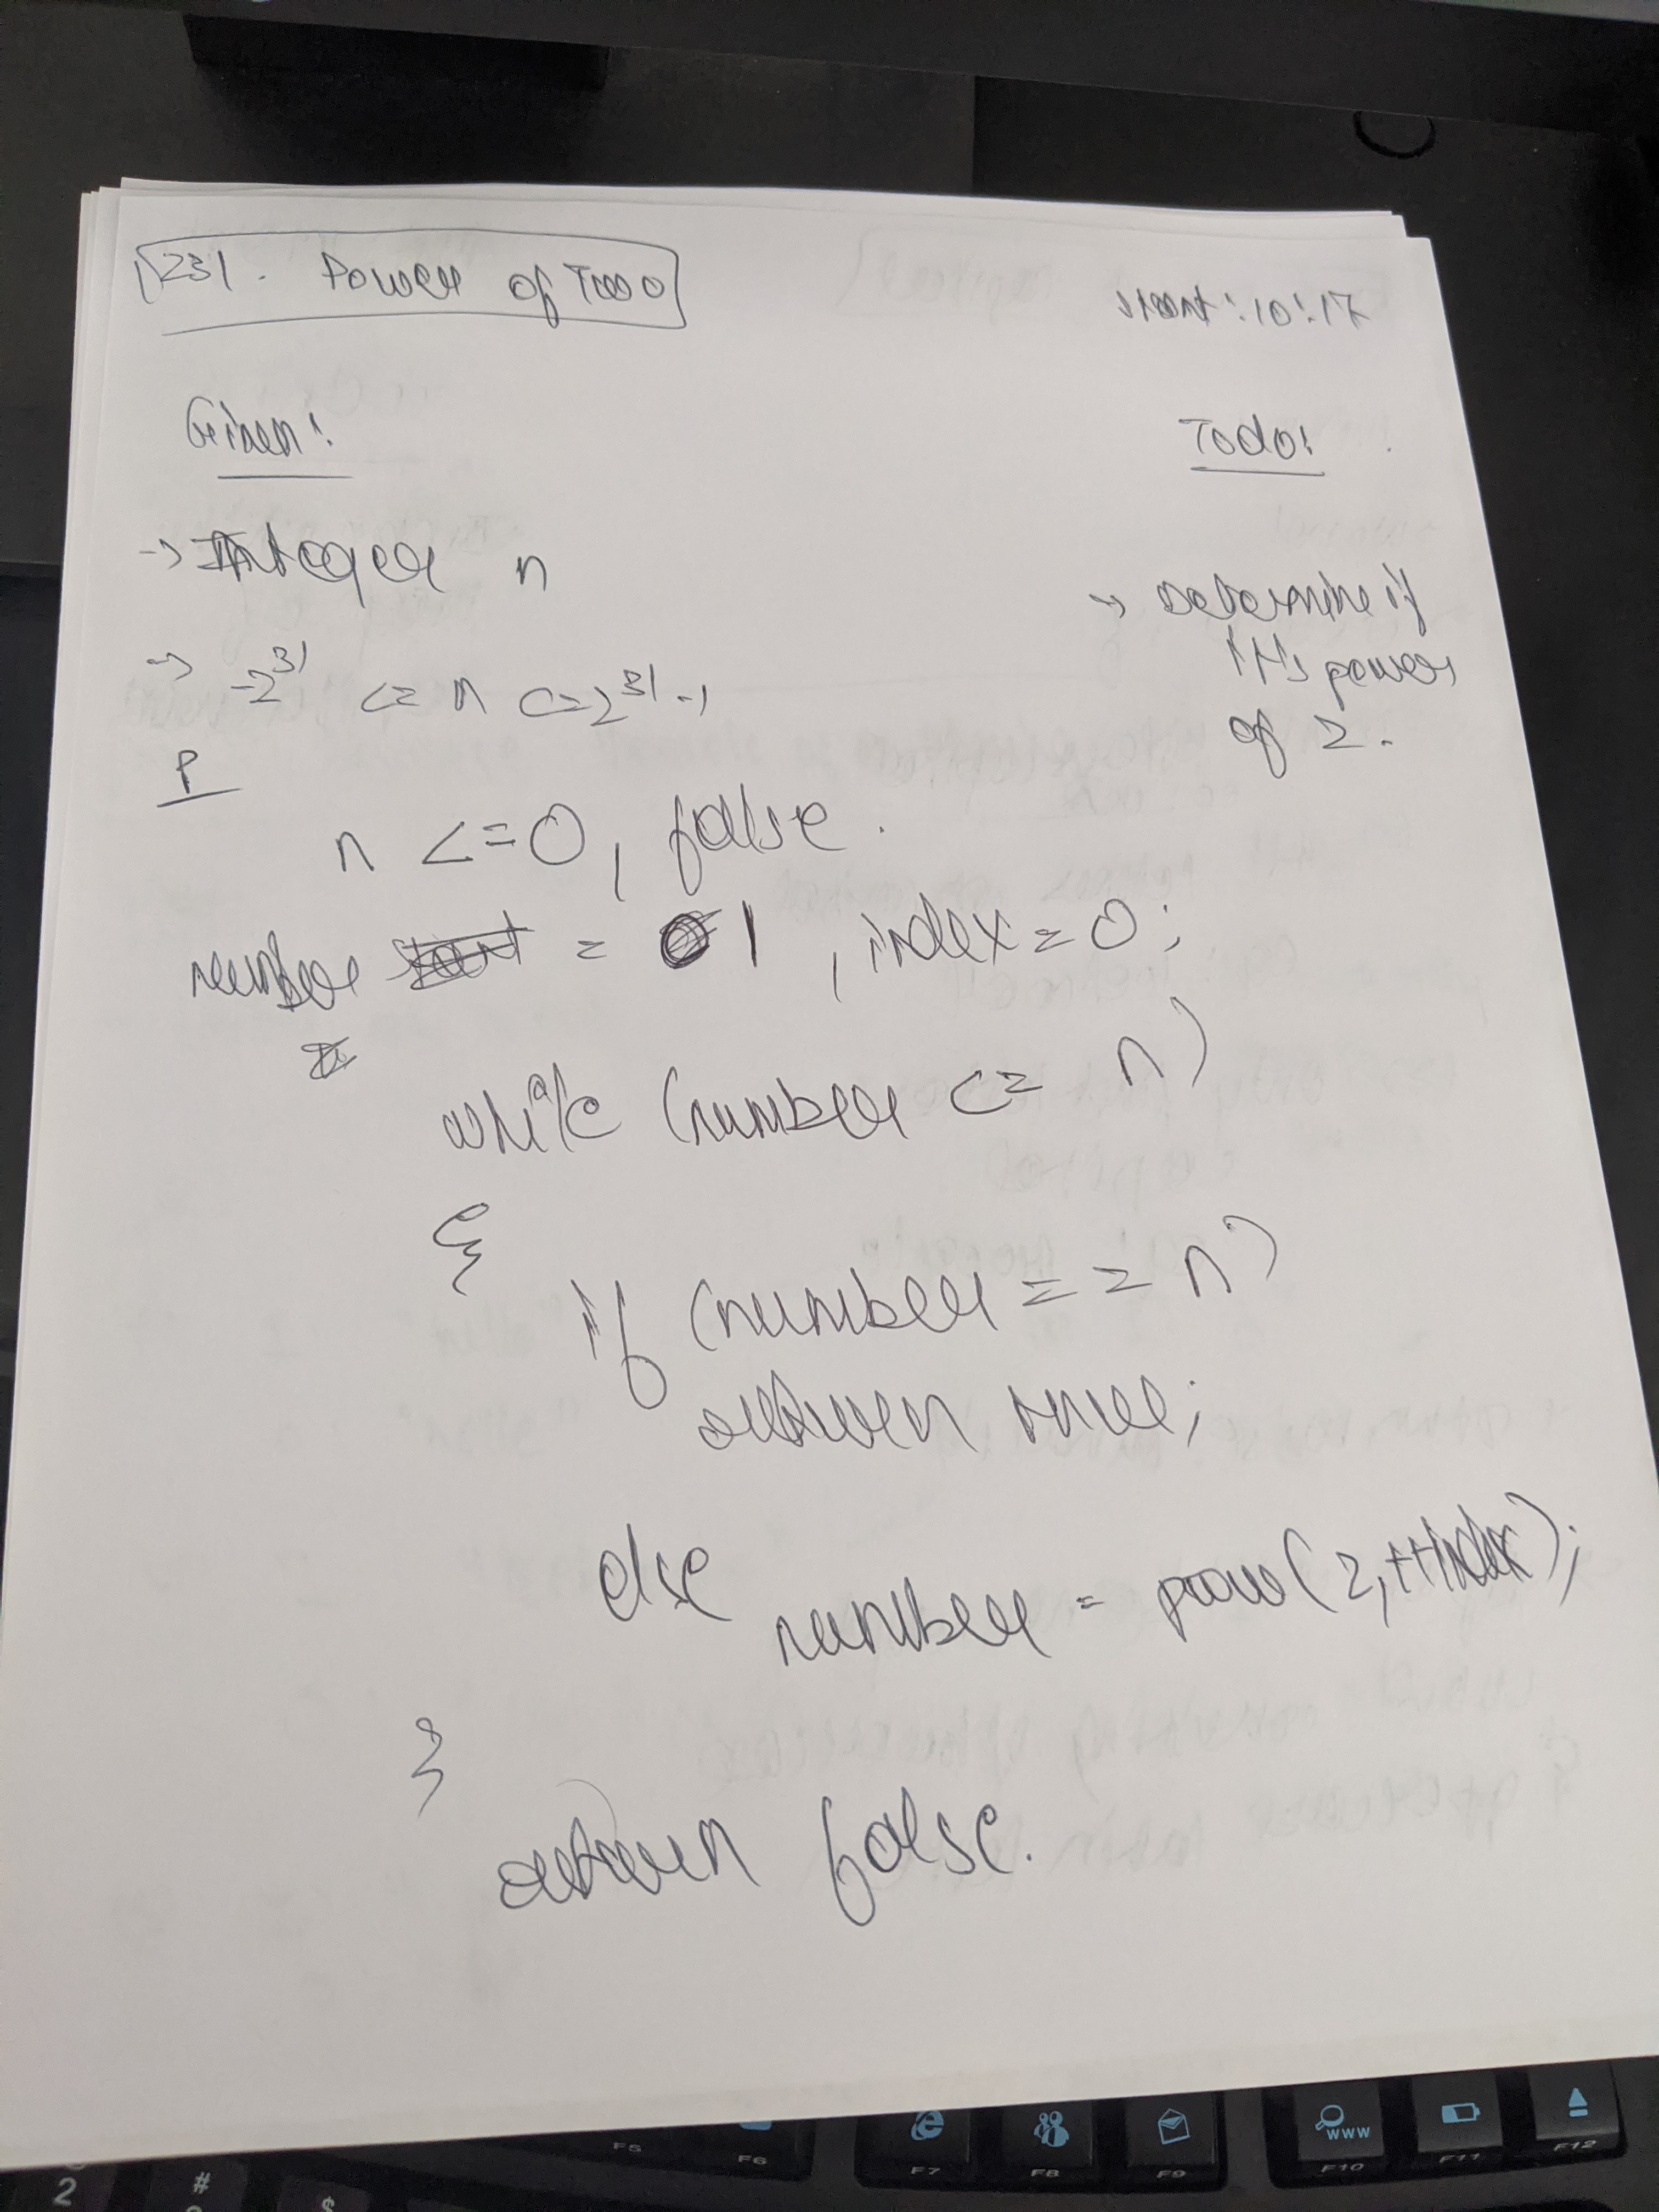 231. Power of Two
Start: 10:17
Given:
Todo:
-> Integer n
-> -2^31 <= n <= 2^31 - 1
-> Determine if
it's power
of 2.
P
n <= 0, false.
number = 1, index = 0;
while (number <= n)
{
if (number == n)
return true;
else
number = pow(2, ++index);
}
return false.
F5
F6
F7
F8
F9
WWW
F10
F11
F12
2
#
$